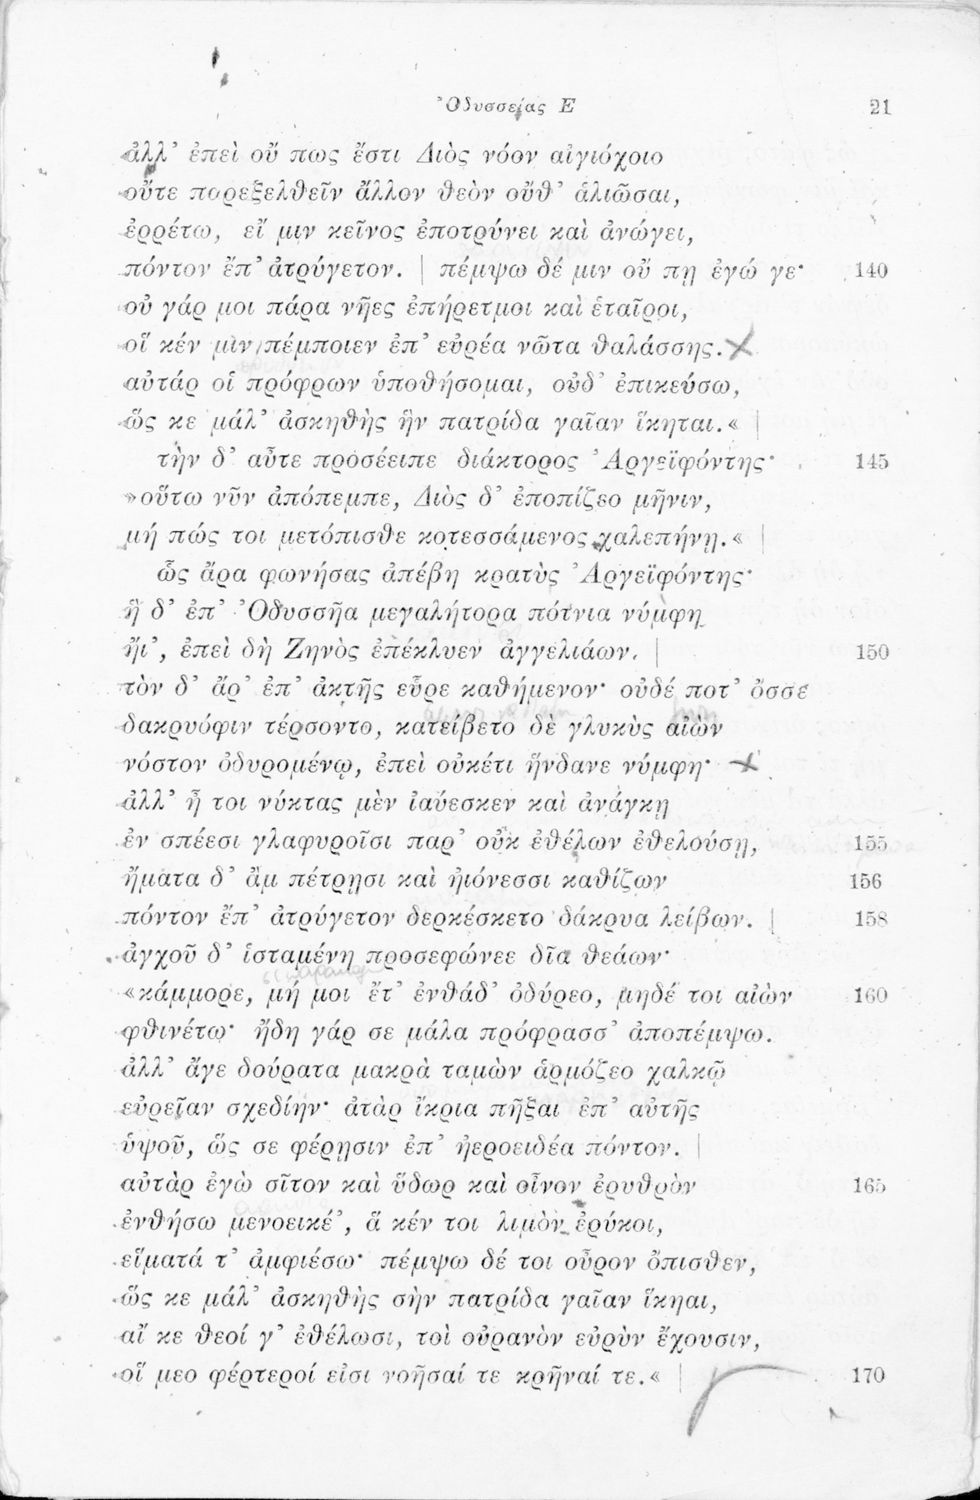 Ὀδυσσείας Ε 21
ἀλλ’ ἐπεὶ οὔ πως ἔστι Διὸς νόον αἰγιόχοιο
οὔτε παρεξελθεῖν ἄλλον θεὸν οὔθ’ ἁλιῶσαι,
ἐρρέτω, εἴ μιν κεῖνος ἐποτρύνει καὶ ἀνώγει,
πόντον ἔπ’ ἀτρύγετον. | πέμψω δέ μιν οὔ πῃ ἐγώ γε· 140
οὐ γάρ μοι πάρα νῆες ἐπήρετμοι καὶ ἑταῖροι,
οἵ κέν μιν πέμποιεν ἐπ’ εὐρέα νῶτα θαλάσσης.
αὐτάρ οἱ πρόφρων ὑποθήσομαι, οὐδ’ ἐπικεύσω,
ὥς κε μάλ’ ἀσκηθὴς ἣν πατρίδα γαῖαν ἵκηται.«
τὴν δ’ αὖτε προσέειπε διάκτορος Ἀργεϊφόντης· 145
»οὕτω νῦν ἀπόπεμπε, Διὸς δ’ ἐποπίζεο μῆνιν,
μή πώς τοι μετόπισθε κοτεσσάμενος χαλεπήνῃ.«
ὣς ἄρα φωνήσας ἀπέβη κρατὺς Ἀργεϊφόντης·
ἣ δ’ ἐπ’ Ὀδυσσῆα μεγαλήτορα πότνια νύμφη
ἤι’, ἐπεὶ δὴ Ζηνὸς ἐπέκλυεν ἀγγελιάων. 150
τὸν δ’ ἄρ’ ἐπ’ ἀκτῆς εὗρε καθήμενον· οὐδέ ποτ’ ὄσσε
δακρυόφιν τέρσοντο, κατείβετο δὲ γλυκὺς αἰὼν
νόστον ὀδυρομένῳ, ἐπεὶ οὐκέτι ἥνδανε νύμφη·
ἀλλ’ ἦ τοι νύκτας μὲν ἰαύεσκεν καὶ ἀνάγκῃ
ἐν σπέεσι γλαφυροῖσι παρ’ οὐκ ἐθέλων ἐθελούσῃ, 155
ἤματα δ’ ἂμ πέτρῃσι καὶ ἠιόνεσσι καθίζων 156
πόντον ἔπ’ ἀτρύγετον δερκέσκετο δάκρυα λείβων. 158
ἀγχοῦ δ’ ἱσταμένη προσεφώνεε δῖα θεάων·
«κάμμορε, μή μοι ἔτ’ ἐνθάδ’ ὀδύρεο, μηδέ τοι αἰὼν 160
φθινέτω· ἤδη γάρ σε μάλα πρόφρασσ’ ἀποπέμψω.
ἀλλ’ ἄγε δούρατα μακρὰ ταμὼν ἁρμόζεο χαλκῷ
εὐρεῖαν σχεδίην· ἀτὰρ ἴκρια πῆξαι ἐπ’ αὐτῆς
ὑψοῦ, ὥς σε φέρῃσιν ἐπ’ ἠεροειδέα πόντον.
αὐτὰρ ἐγὼ σῖτον καὶ ὕδωρ καὶ οἶνον ἐρυθρὸν 165
ἐνθήσω μενοεικέ’, ἅ κέν τοι λιμὸν ἐρύκοι,
εἵματά τ’ ἀμφιέσω· πέμψω δέ τοι οὖρον ὄπισθεν,
ὥς κε μάλ’ ἀσκηθὴς σὴν πατρίδα γαῖαν ἵκηαι,
αἴ κε θεοί γ’ ἐθέλωσι, τοὶ οὐρανὸν εὐρὺν ἔχουσιν,
οἵ μεο φέρτεροί εἰσι νοῆσαί τε κρῆναί τε.« 170